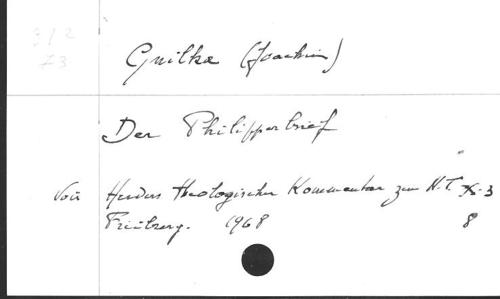 312
73
Gnilka (Joachim)
Der Philipperbrief
Voir Herders Theologischer Kommentar zum N.T. X-3
Freiburg. 1968 8